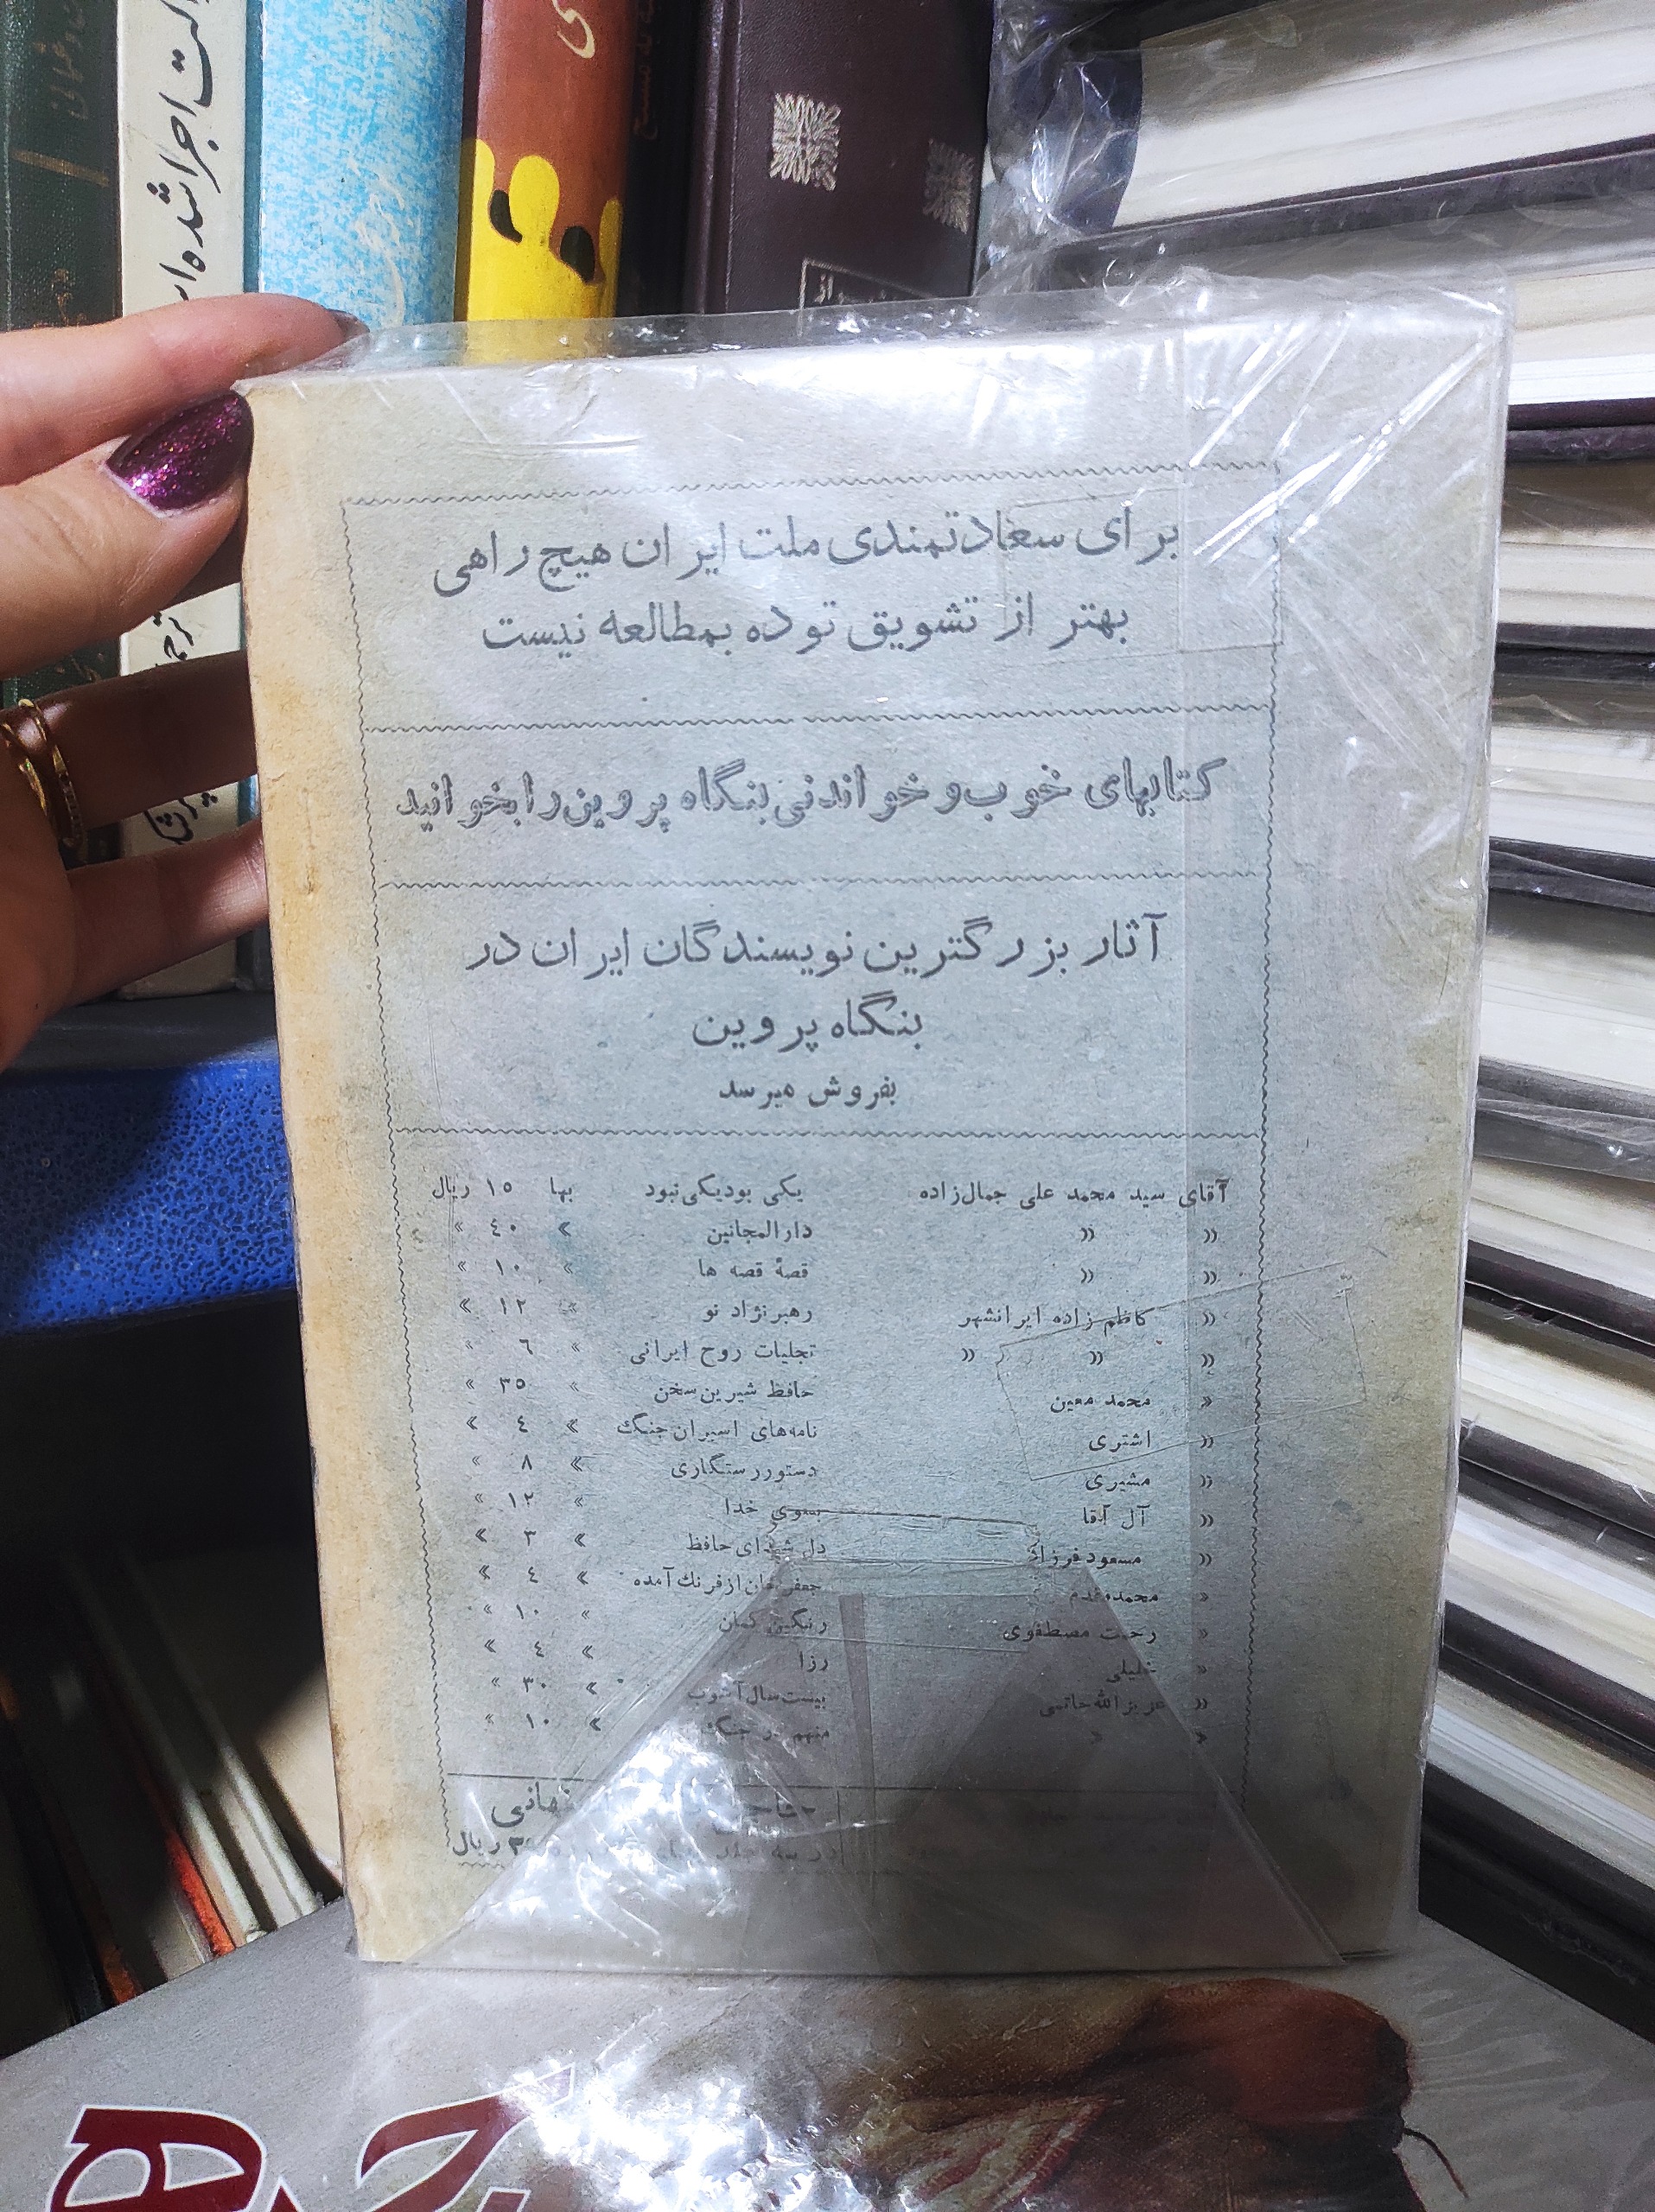 اجرا شده
برای سعادتمندی ملت ایران هیچ راهی
بهتر از تشویق توده بمطالعه نیست
کتابهای خوب و خواندنی بنگاه پروین را بخوانید
آثار بزرگترین نویسندگان ایران در
بنگاه پروین
بفروش میرسد
آقای سید محمد علی جمال‌زاده یکی بود یکی نبود بها ۱۵ ریال
« « دارالمجانین » ۴۰ »
« « قصهٔ قصه ها » ۱۰ »
« کاظم زاده ایرانشهر رهبر نژاد نو » ۱۲ »
« « « تجلیات روح ایرانی » ۶ »
« محمد معین حافظ شیرین سخن » ۳۵ »
« اشتری نامه‌های اسیران جنگ » ۴ »
« مشیری دستور رستگاری » ۸ »
« آل آقا بسوی خدا » ۱۲ »
« مسعود فرزاد دل شیدای حافظ » ۳ »
« محمد مقدم جعفر خان از فرنك آمده » ۴ »
« رحمت مصطفوی رنگین کمان » ۱۰ »
« خلیلی رزا » ۴ »
« عزیزالله حاتمی بیست سال آشوب » ۳۰ »
« « متهم در جنگ » ۱۰ »
ریال